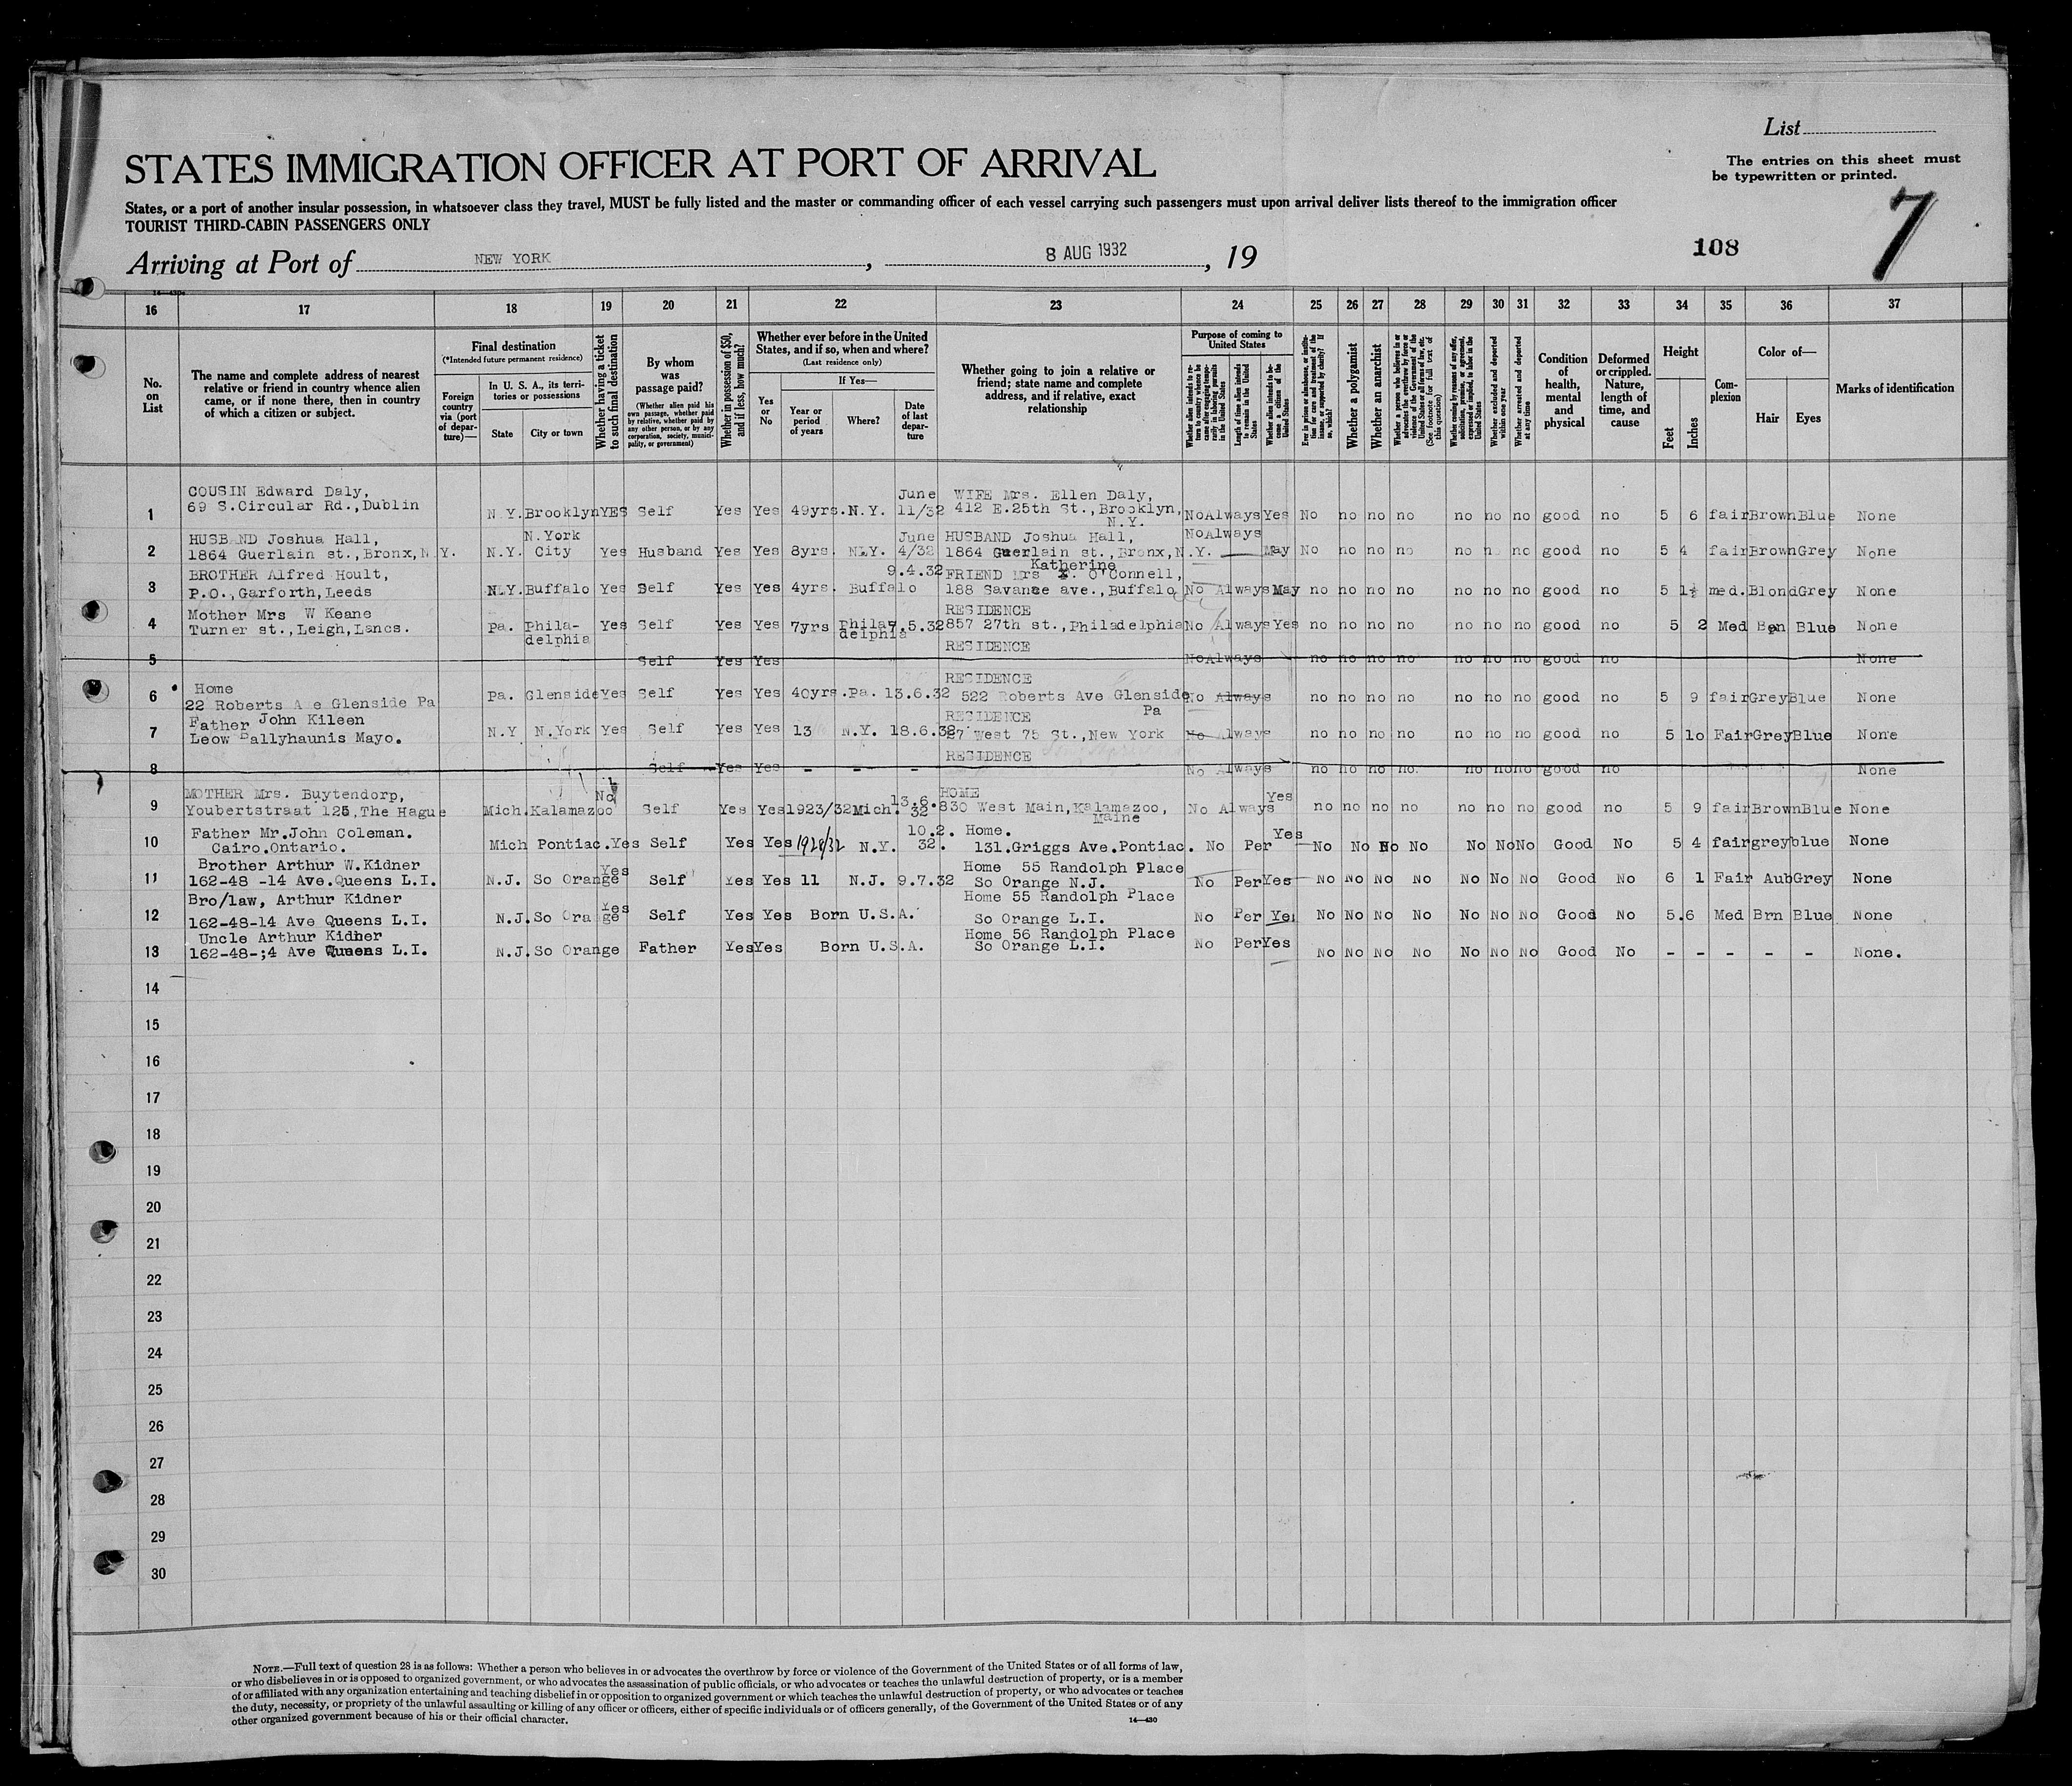 List
STATES IMMIGRATION OFFICER AT PORT OF ARRIVAL
The entries on this sheet must
be typewritten or printed.
States, or a port of another insular possession, in whatsoever class they travel, MUST be fully listed and the master or commanding officer of each vessel carrying such passengers must upon arrival deliver lists thereof to the immigration officer
TOURIST THIRD-CABIN PASSENGERS ONLY
7
108
Arriving at Port of NEW YORK , 8 AUG 1932 , 19
16 17 18 19 20 21 22 23 24 25 26 27 28 29 30 31 32 33 34 35 36 37
No. on List
The name and complete address of nearest relative or friend in country whence alien came, or if none there, then in country of which a citizen or subject.
Final destination
(*Intended future permanent residence)
Foreign country via (port of departure)—
In U. S. A., its territories or possessions
State City or town
Whether having a ticket to such final destination
By whom was passage paid?
(Whether alien paid his own passage, whether paid by relative, whether paid by any other person, or by any corporation, society, municipality, or government)
Whether in possession of $50, and if less, how much?
Whether ever before in the United States, and if so, when and where?
(Last residence only)
Yes or No
If Yes—
Year or period of years
Where?
Date of last departure
Whether going to join a relative or friend; state name and complete address, and if relative, exact relationship
Purpose of coming to United States
Length of time alien intends to remain in the United States
Whether alien intends to become a citizen of the United States
Whether a polygamist
Whether an anarchist
Whether excluded and deported within one year
Whether arrested and deported at any time
Condition of health, mental and physical
Deformed or crippled. Nature, length of time, and cause
Height
Feet Inches
Complexion
Color of—
Hair Eyes
Marks of identification
1 COUSIN Edward Daly, 69 S.Circular Rd.,Dublin N.Y. Brooklyn YES Self Yes Yes 49yrs. N.Y. June 11/32 WIFE Mrs. Ellen Daly, 412 E.25th St.,Brooklyn, N.Y. No Always Yes No no no no no no no good no 5 6 fair Brown Blue None
2 HUSBAND Joshua Hall, 1864 Guerlain st.,Bronx,N.Y. N.Y. N.York City Yes Husband Yes Yes 8yrs. N.Y. June 4/32 HUSBAND Joshua Hall, 1864 Guerlain st., Bronx,N.Y. No Always May No no no no no no no good no 5 4 fair Brown Grey None
3 BROTHER Alfred Hoult, P.O.,Garforth,Leeds N.Y. Buffalo Yes Self Yes Yes 4yrs. Buffalo 9.4.32 FRIEND Mrs Katherine O'Connell, 188 Savanse ave.,Buffalo No Always May no no no no no no no good no 5 1½ med. Blond Grey None
4 Mother Mrs W Keane Turner st.,Leigh,Lancs. Pa. Phila-delphia Yes Self Yes Yes 7yrs Philadelphia 7.5.32 RESIDENCE 857 27th st.,Philadelphia No Always Yes no no no no no no no good no 5 2 Med Bn Blue None
5 Self Yes Yes RESIDENCE No Always no no no no no no no good no None
6 Home 22 Roberts Ave Glenside Pa Pa. Glenside Yes Self Yes Yes 40yrs. Pa. 13.6.32 RESIDENCE 522 Roberts Ave Glenside Pa No Always no no no no no no no good no 5 9 fair Grey Blue None
7 Father John Kileen Leow Ballyhaunis Mayo. N.Y N.York Yes Self Yes Yes 13 N.Y. 18.6.32 RESIDENCE 27 West 75 St.,New York No Always no no no no no no no good no 5 10 Fair Grey Blue None
8 Self Yes Yes - - - RESIDENCE No Always no no no no. no no no good no None
9 MOTHER Mrs. Buytendorp, Youbertstraat 125,The Hague Mich. Kalamazoo No Self Yes Yes 1923/32 Mich. 13.6.32 HOME 830 West Main,Kalamazoo, Maine No Always Yes no no no no no no no good no 5 9 fair Brown Blue None
10 Father Mr.John Coleman. Cairo.Ontario. Mich Pontiac. Yes Self Yes Yes 1928/32 N.Y. 10.2.32. Home. 131.Griggs Ave.Pontiac. No Per Yes No No No No No No No Good No 5 4 fair grey blue None
11 Brother Arthur W.Kidner 162-48 -14 Ave.Queens L.I. N.J. So Orange Yes Self Yes Yes 11 N.J. 9.7.32 Home 55 Randolph Place So Orange N.J. No Per Yes No No No No No No No Good No 6 1 Fair Aub Grey None
12 Bro/law, Arthur Kidner 162-48-14 Ave Queens L.I. N.J. So Orange Yes Self Yes Yes Born U.S.A. Home 55 Randolph Place So Orange L.I. No Per Yes No No No No No No No Good No 5.6 Med Brn Blue None
13 Uncle Arthur Kidner 162-48-;4 Ave Queens L.I. N.J. So Orange Father Yes Yes Born U.S.A. Home 56 Randolph Place So Orange L.I. No Per Yes No No No No No No No Good No - - - - - None.
14
15
16
17
18
19
20
21
22
23
24
25
26
27
28
29
30
NOTE.—Full text of question 28 is as follows: Whether a person who believes in or advocates the overthrow by force or violence of the Government of the United States or of all forms of law,
or who disbelieves in or is opposed to organized government, or who advocates the assassination of public officials, or who advocates or teaches the unlawful destruction of property, or is a member
of or affiliated with any organization entertaining and teaching disbelief in or opposition to organized government or which teaches the unlawful destruction of property, or who advocates or teaches
the duty, necessity, or propriety of the unlawful assaulting or killing of any officer or officers, either of specific individuals or of officers generally, of the Government of the United States or of any
other organized government because of his or their official character.
14—430